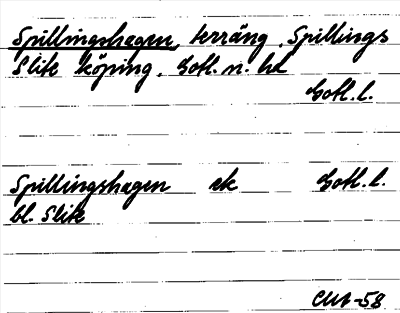 Spillingshagen, terräng, Spillings
Slite köping, Gotl. n. hd
Gotl. l.
Spillingshagen ek Gotl. l.
bl. Slite